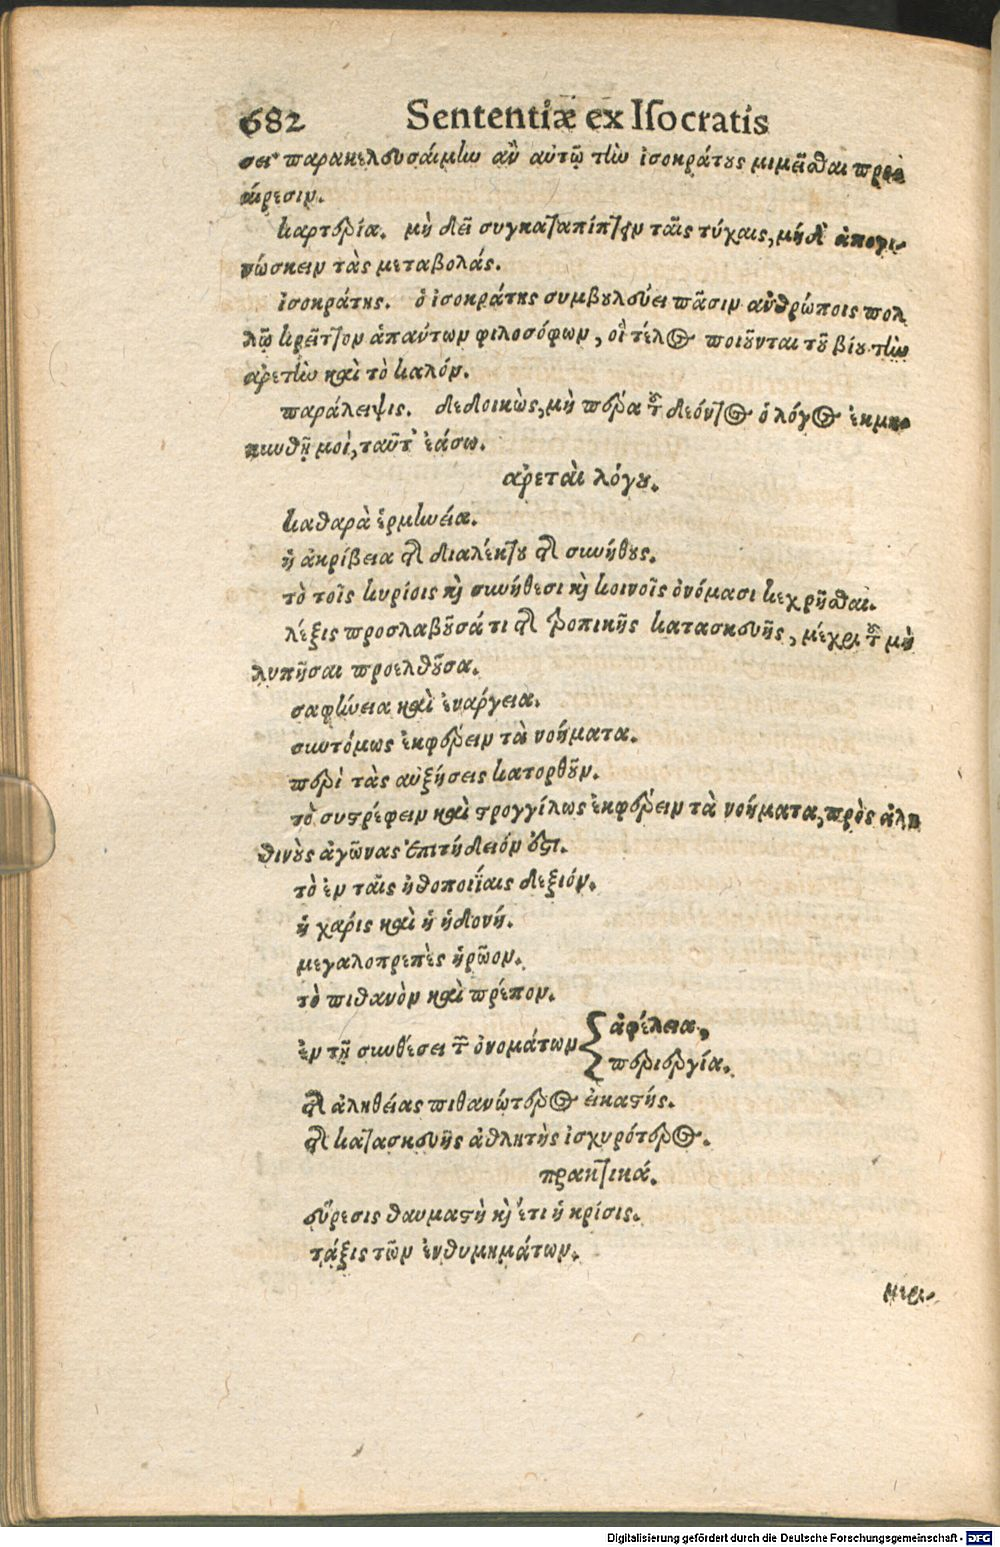 682 Sententiæ ex Iſocratis
σει· παρακελευσαίμην ἂν αὐτῷ τὴν ἰσοκράτους μιμεῖσθαι προ
αίρεσιν.
καρτερία. μὴ δεῖ συγκαταπίπτειν ταῖς τύχαις, μήδ' ἀπογι-
νώσκειν τὰς μεταβολάς.
ἰσοκράτης. ὁ ἰσοκράτης συμβουλεύει πᾶσιν ἀνθρώποις πολ
λῷ κρεῖττον ἁπάντων φιλοσόφων, οἳ τέλος ποιοῦνται τοῦ βίου τὴν
ἀρετὴν καὶ τὸ καλόν.
παράλειψις. δεδοικὼς, μὴ πέρα τοῦ δέοντος ὁ λόγος ἐκμη
κυνθῇ μοι, ταῦτ' ἐάσω.
ἀρεταὶ λόγου.
καθαρὰ ἑρμηνεία.
ἡ ἀκρίβεια τῆς διαλέκτου τῆς συνήθους.
τὸ τοῖς κυρίοις καὶ συνήθεσι καὶ κοινοῖς ὀνόμασι κεχρῆσθαι.
λέξις προσλαβοῦσά τι τῆς τροπικῆς κατασκευῆς, μέχρι τοῦ μὴ
λυπῆσαι προελθοῦσα.
σαφήνεια καὶ ἐνάργεια.
συντόμως ἐκφέρειν τὰ νοήματα.
περὶ τὰς αὐξήσεις κατορθοῦν.
τὸ συστρέφειν καὶ στρογγύλως ἐκφέρειν τὰ νοήματα, πρὸς ἀλη
θινοὺς ἀγῶνας ἐπιτήδειόν ἐστι.
τὸ ἐν ταῖς ἠθοποιΐαις δεξιόν.
ἡ χάρις καὶ ἡ ἡδονή.
μεγαλοπρεπὲς ἡρῶον.
τὸ πιθανὸν καὶ πρέπον.
ἐν τῇ συνθέσει τῶν ὀνομάτων { ἀφέλεια,
περιεργία.
τῆς ἀληθείας πιθανώτερος εἰκαστής.
τῆς κατασκευῆς ἀθλητὴς ἰσχυρότερος.
πρακτικά.
εὕρεσις θαυμαστὴ καὶ ἔτι ἡ κρίσις.
τάξις τῶν ἐνθυμημάτων.
μερι-
Digitalisierung gefördert durch die Deutsche Forschungsgemeinschaft - DFG